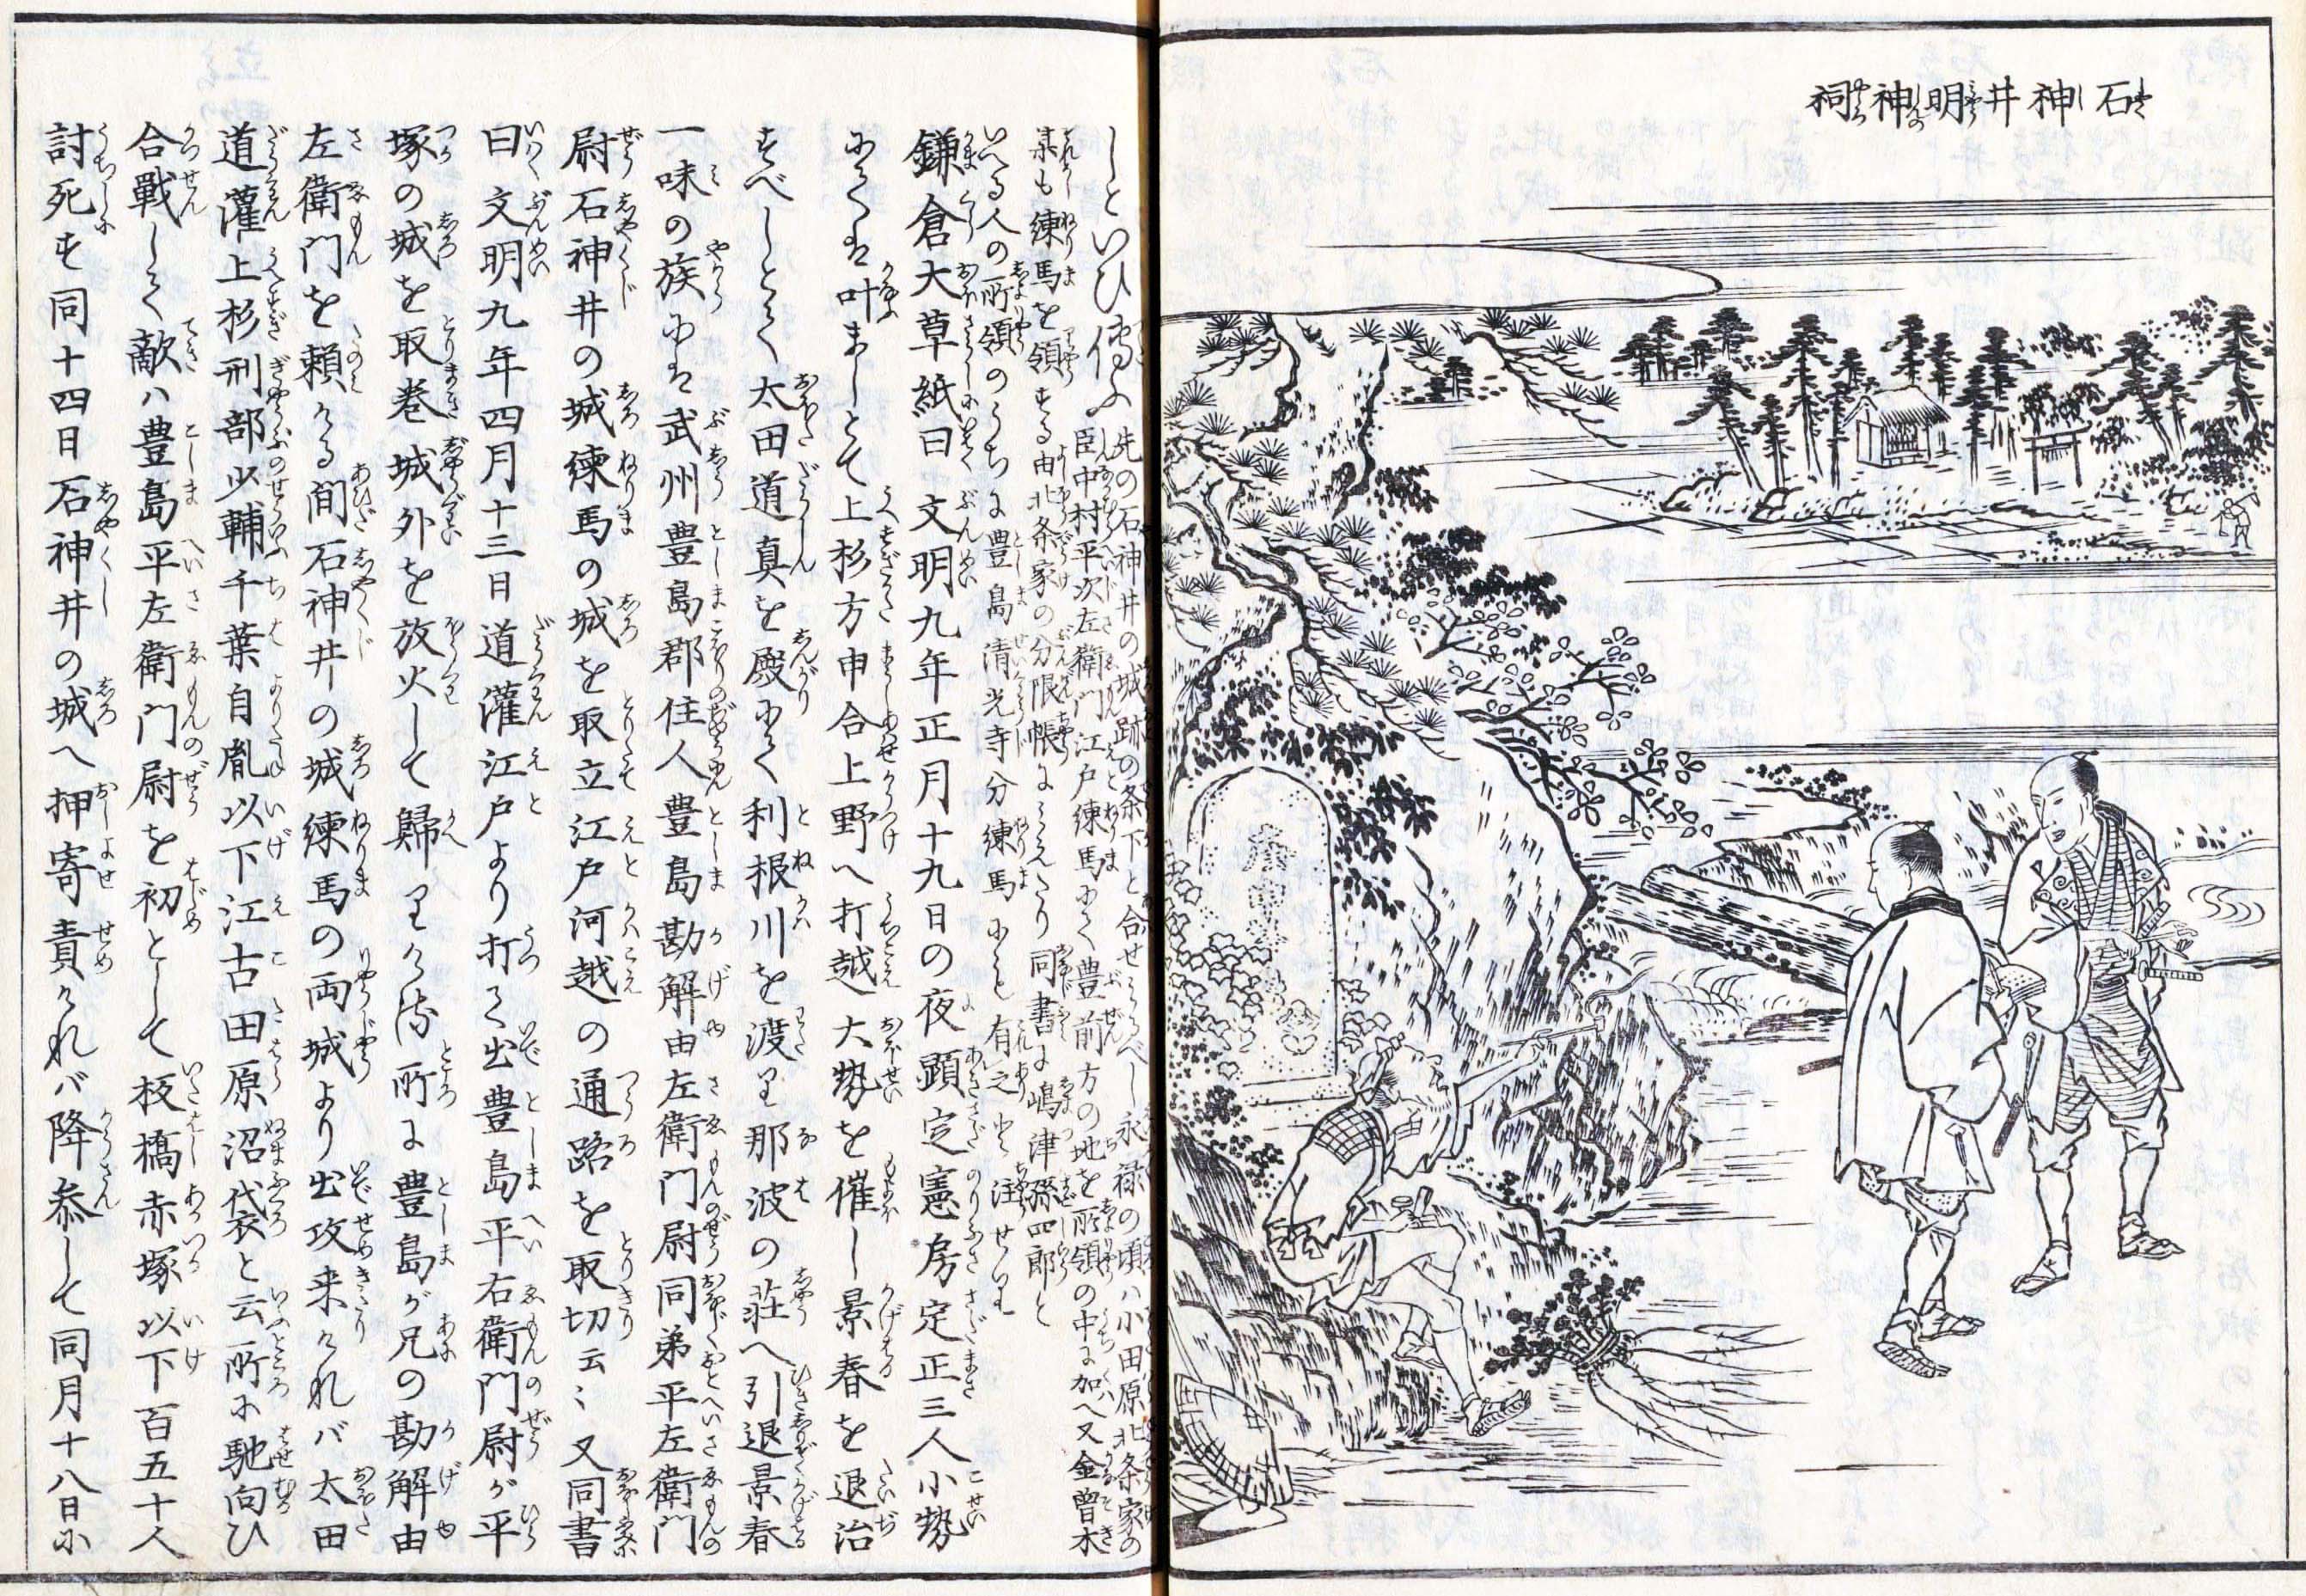 石神井明神祠
庚申塚
しといひ傳ふ
先の石神井の城跡の条下と合せみるべし永禄の頃ハ小田原北条家の
臣中村平次左衛門江戸練馬にて豊前方の地を所領の中に加へ又金曽木
某も練馬を領する由北条家の分限帳にみえたり同書に嶋津孫四郎と
いへる人の所領のうちに豊島清光寺分練馬にもと有之と注せり
鎌倉大草紙曰文明九年正月十九日の夜顕定憲房定正三人小勢
にてハ叶ましとて上杉方申合上野へ打越大勢を催し景春を退治
すべしとて太田道真を殿にて利根川を渡り那波の荘へ引退景春
一味の族にハ武州豊島郡住人豊島勘解由左衛門尉同弟平左衛門
尉石神井の城練馬の城を取立江戸河越の通路を取切云〻又同書
曰文明九年四月十三日道灌江戸より打て出豊島平右衛門尉が平
塚の城を取巻城外を放火して歸りける所に豊島が兄の勘解由
左衛門を頼ける間石神井の城練馬の両城より出攻来けれバ太田
道灌上杉刑部少輔千葉自胤以下江古田原沼袋と云所に馳向ひ
合戰して敵ハ豊島平左衛門尉を初として板橋赤塚以下百五十人
討死す同十四日石神井の城へ押寄責けれバ降参して同月十八日に